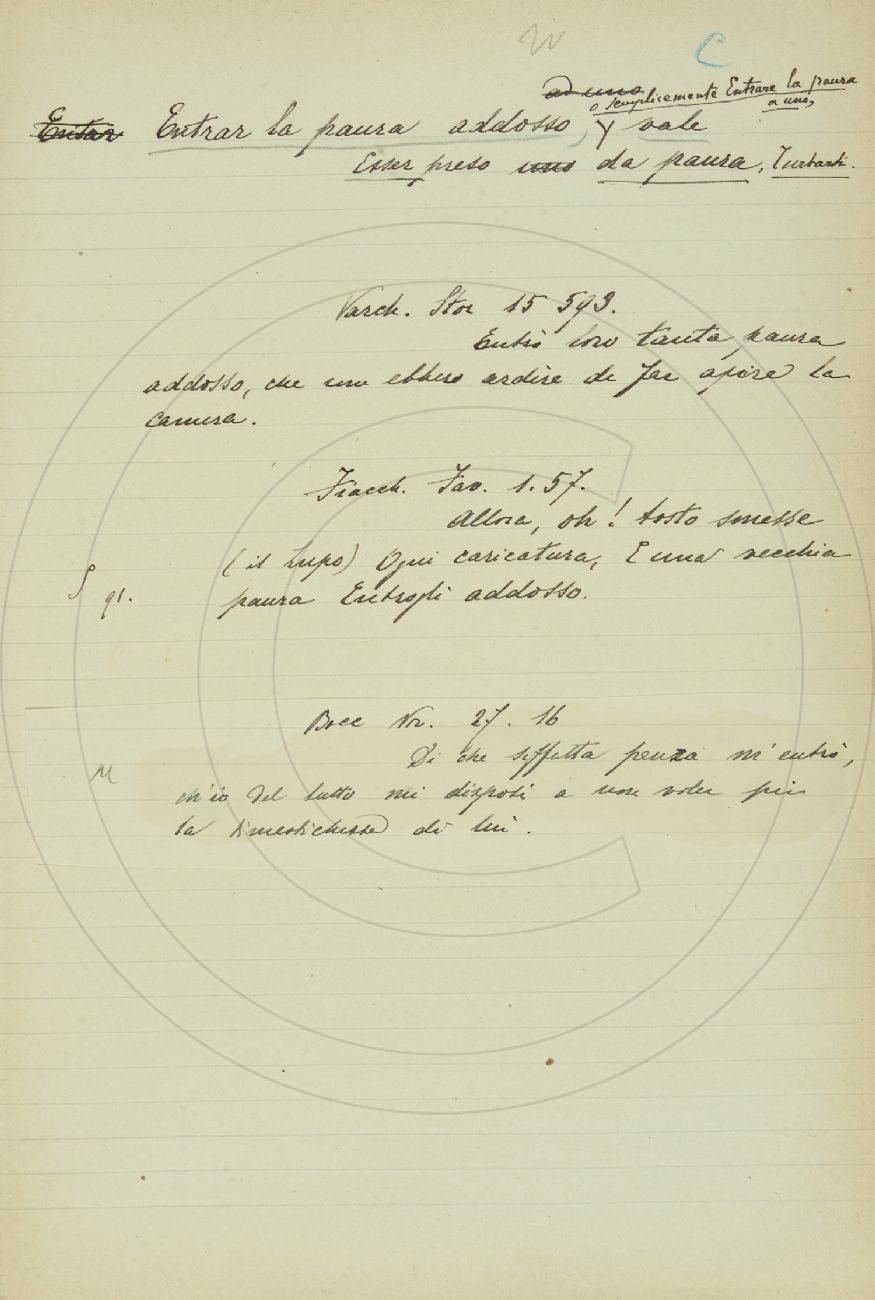 C
ad uno
o semplicemente Entrare la paura
a uno,
Entrar Entrar la paura addosso, vale
Esser preso uno da paura, Turbarsi.
Varch. Stor 15 593.
Entrò loro tanta paura
addosso, che non ebbero ardire di far aprire la
camera.
Fiacch. Fav. 1. 57.
Allora, oh! tosto smesse
(il Lupo) Ogni caricatura, E una vecchia
paura Entrogli addosso.
91.
Bocc Nov. 27. 16
Di che siffatta paura m'entrò,
ch'io del tutto mi disposi a non voler più
la dimestichezza di lui.